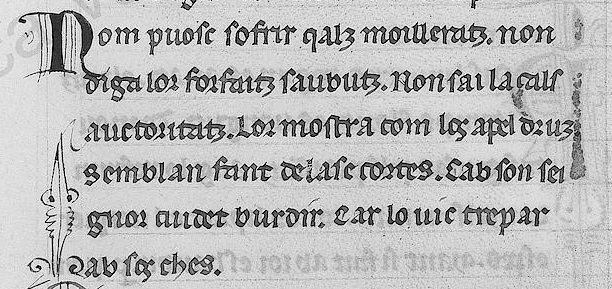 Nom puosc sofrir qalz moilleratz. non
diga lor forfaitz saubutz. Non sai la cals
auctoritatz. Lor mostra com los apel drutz
Semblan fant de lase cortes. Cab son sei
gnor cuidet burdir. Car lo vic trepar
ab sos ches.